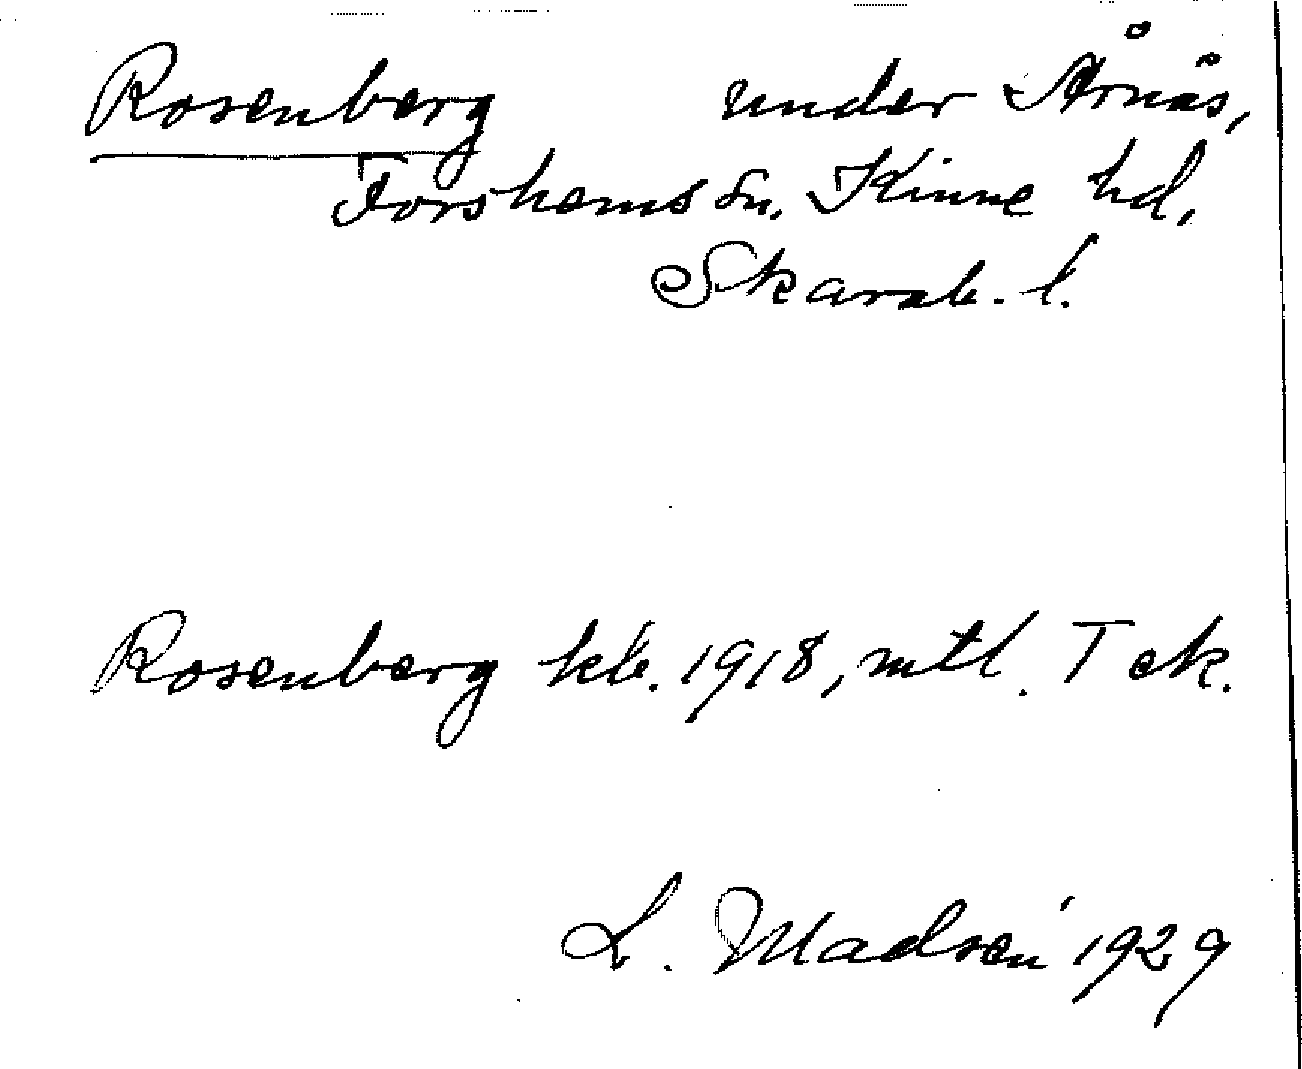 Rosenberg under Årnäs,
Forshems sn. Kinne hd,
Skarab. l.
Rosenberg kb. 1918, mtl. T ek.
L. Madsén 1929